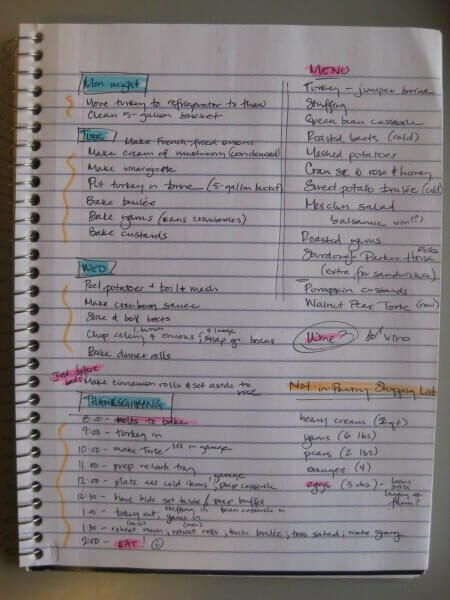 Mon night
Move turkey to refrigerator to thaw
Clean 5-gallon bucket
Tues
Make French-fried onions
Make cream of mushroom (condensed)
Make vinaigrette
Put turkey in brine (5-gallon bucket)
Bake brulée
Bake yams (sans cranberries)
Bake custards
Wed
Peel potatoes + boil + mash
Make cranberry sauce
Slice & boil beets
Chop celery & onions; snap gr beans
Bake dinner rolls
Just before bed:
Make cinnamon rolls & set aside to rise
THANKSGIVING
8:00 - rolls to bake
9:00 - turkey in
10:00 - make Torte, set in garage
11:00 - prep relish tray
12:00 - plate all cold items, prep casserole
12:30 - have kids set table / prep buffet
1:00 - turkey out, stuffing in bean casserole in
yams in
1:30 - reheat mash, reheat rolls, torch brulée, toss salad, make gravy
2:00 - EAT!
MENU
Turkey - juniper brine
Stuffing
Green bean casserole
Roasted beets (cold)
Mashed potatoes
Cran sc rose & honey
Sweet potato brulée (cold)
Mesclun salad
balsamic vin (?)
Roasted yams
Sourdough Parker House
(extra for sandwiches)
Pumpkin custards
Walnut Pear Torte (raw)
Wine? vino
Not-in-Pantry Shopping List
heavy cream (2 qt)
yams (6 lbs)
pears (2 lbs)
oranges (4)
eggs (3 doz) -